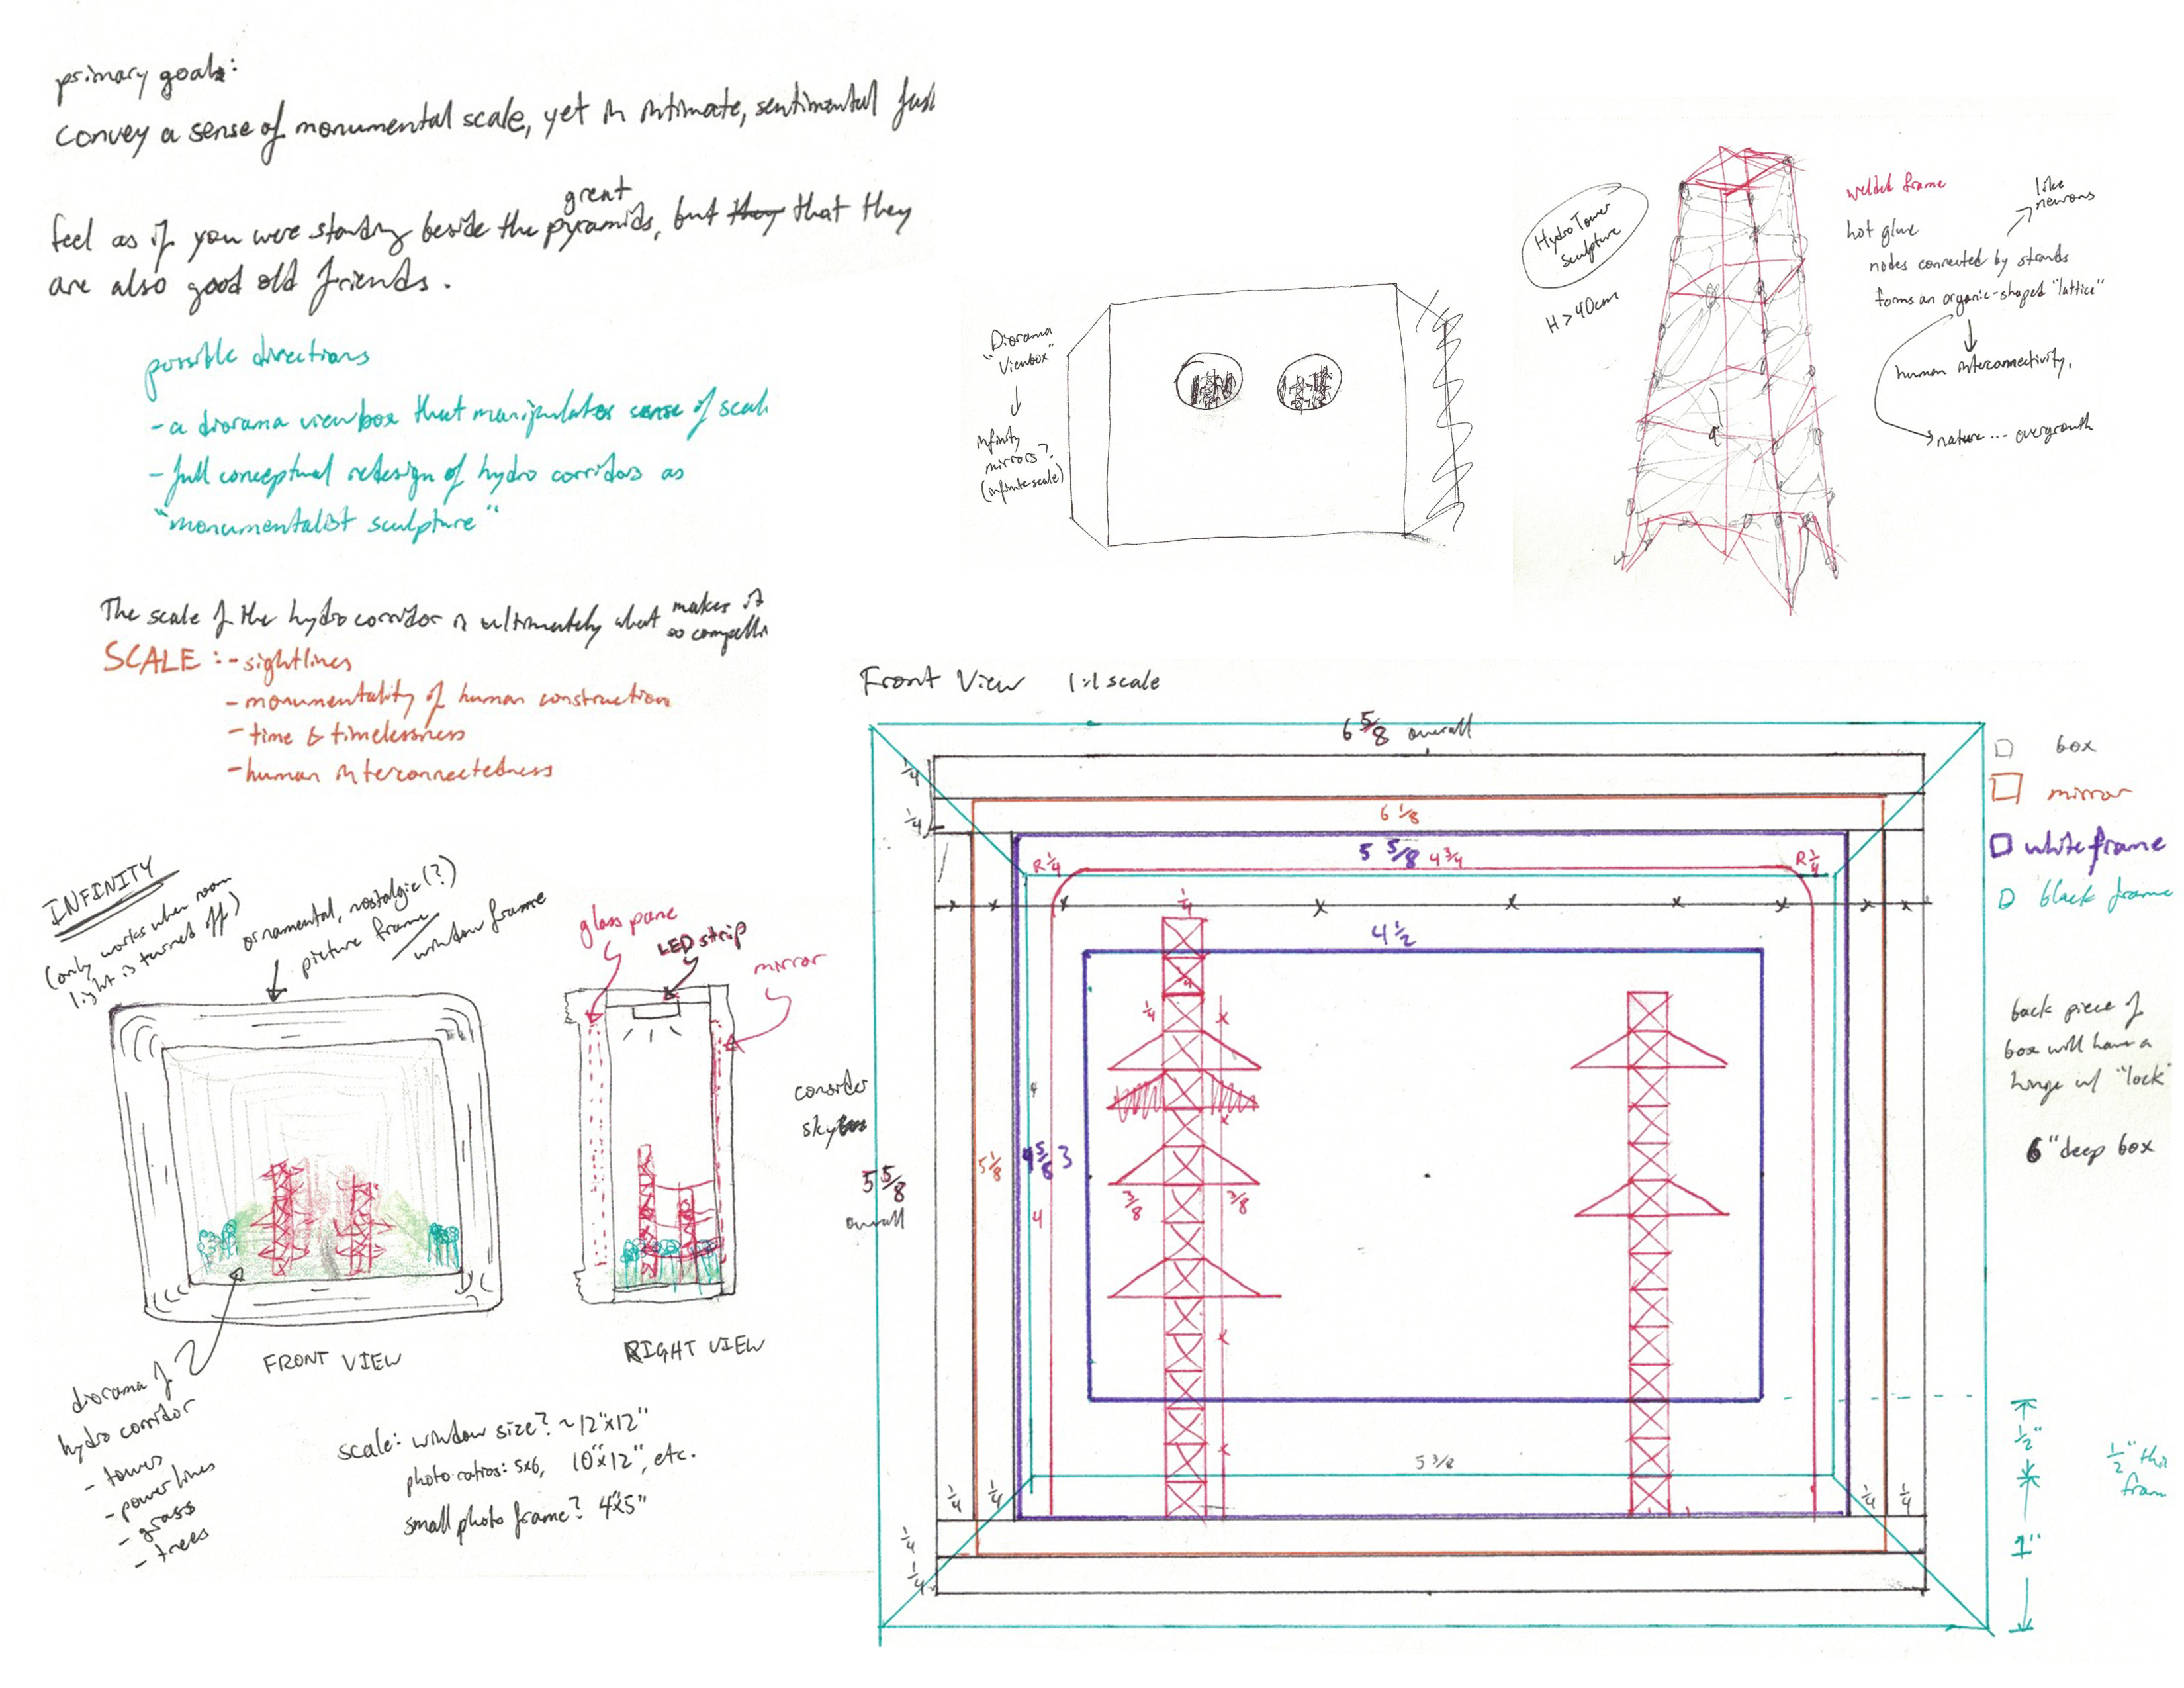 primary goal:
convey a sense of monumental scale, yet in intimate, sentimental
great
feel as if you were standing beside the pyramids, but they that they
are also good old friends.
possible directions
- a diorama viewbox that manipulates sense of
- full conceptual redesign of hydro corridors as
"monumentalist sculpture"
The scale of the hydro corridor is ultimately what makes it
so
SCALE : - sightlines
- monumentality of human construction
- time & timelessness
- human interconnectedness
Diorama
"Viewbox"
infinity
mirrors?
(infinite scale)
Hydro Tower
sculpture
H > 40cm
welded frame
hot glue
like
neurons
nodes connected by strands
forms an organic-shaped "lattice"
human interconnectivity,
nature ... overgrowth
INFINITY
(only works when room
light is turned off)
ornamental, nostalgic (?)
picture frame
window frame
glass pane
LED strip
mirror
FRONT VIEW
RIGHT VIEW
diorama of
hydro corridor
- tower
- powerlines
- grass
- trees
scale: window size? ~ 12"x12"
photo ratios: 5x6, 10"x12", etc.
small photo frame? 4"x5"
consider
Front View 1:1 scale
6 5/8 overall
1/4
1/4
6 1/8
5 5/8 4 3/4
R 1/4
R 1/4
1/4
4 1/2
4
1/4
4
5 5/8
overall
5 1/8
4 5/8 3
3/8
3/8
4
5 3/8
1/4
1/4
1/4
1/4
1/4
1/4
box
mirror
white frame
black frame
back piece of
box will have a
hinge w/ "lock"
6" deep box
1/2"
1/2"
1"